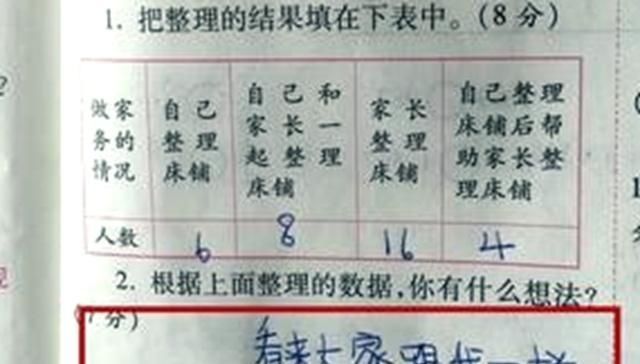 1. 把整理的结果填在下表中。(8分)
做家务的情况
自己整理床铺
自己和家长一起整理床铺
家长整理床铺
自己整理床铺后帮助家长整理床铺
人数 6 8 16 4
2. 根据上面整理的数据,你有什么想法?
(7分)
看来大家